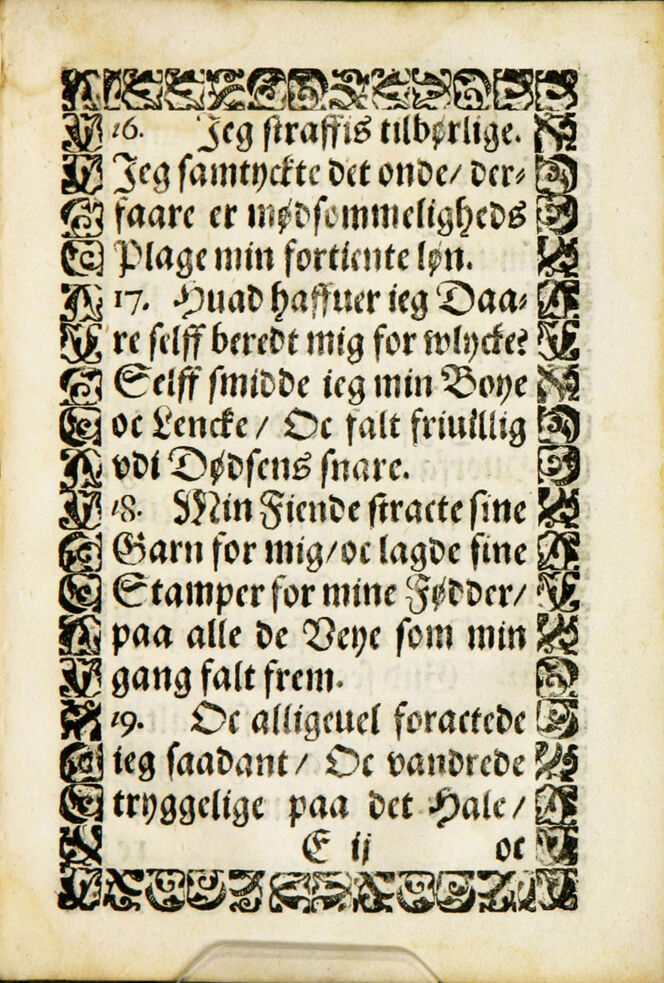 16. Jeg straffis tilbørlige.
Jeg samtyckte det onde/ der⸗
faare er mødsommeligheds
Plage min fortiente løn.
17. Huad haffuer ieg Daa⸗
re selff beredt mig for wlycke?
Selff smidde ieg min Boye
oc Lencke / Oc falt friuillig
vdi Dødsens snare.
18. Min Fiende stracte sine
Garn for mig/oc lagde sine
Stamper for mine Fødder/
paa alle de Veye som min
gang falt frem.
19. Oc alligeuel foractede
ieg saadant / Oc vandrede
tryggelige paa det Hale /
E ij oc